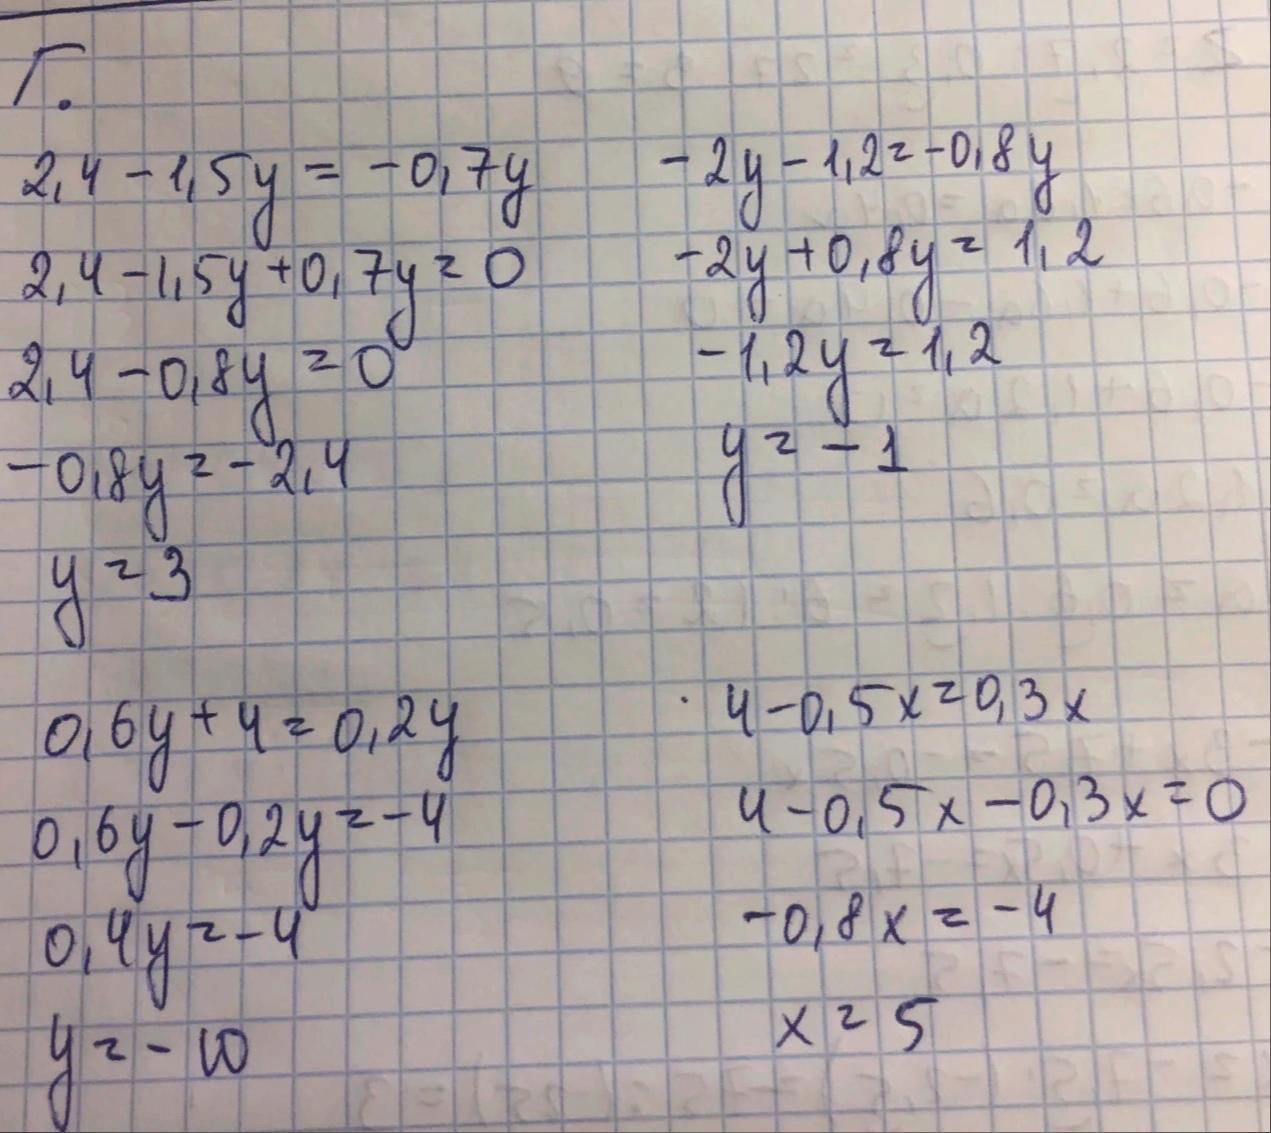 Г.
2,4 - 1,5y = -0,7y
2,4 - 1,5y + 0,7y = 0
2,4 - 0,8y = 0
-0,8y = -2,4
y = 3
-2y - 1,2 = -0,8y
-2y + 0,8y = 1,2
-1,2y = 1,2
y = -1
0,6y + 4 = 0,2y
0,6y - 0,2y = -4
0,4y = -4
y = -10
4 - 0,5x = 0,3x
4 - 0,5x - 0,3x = 0
-0,8x = -4
x = 5